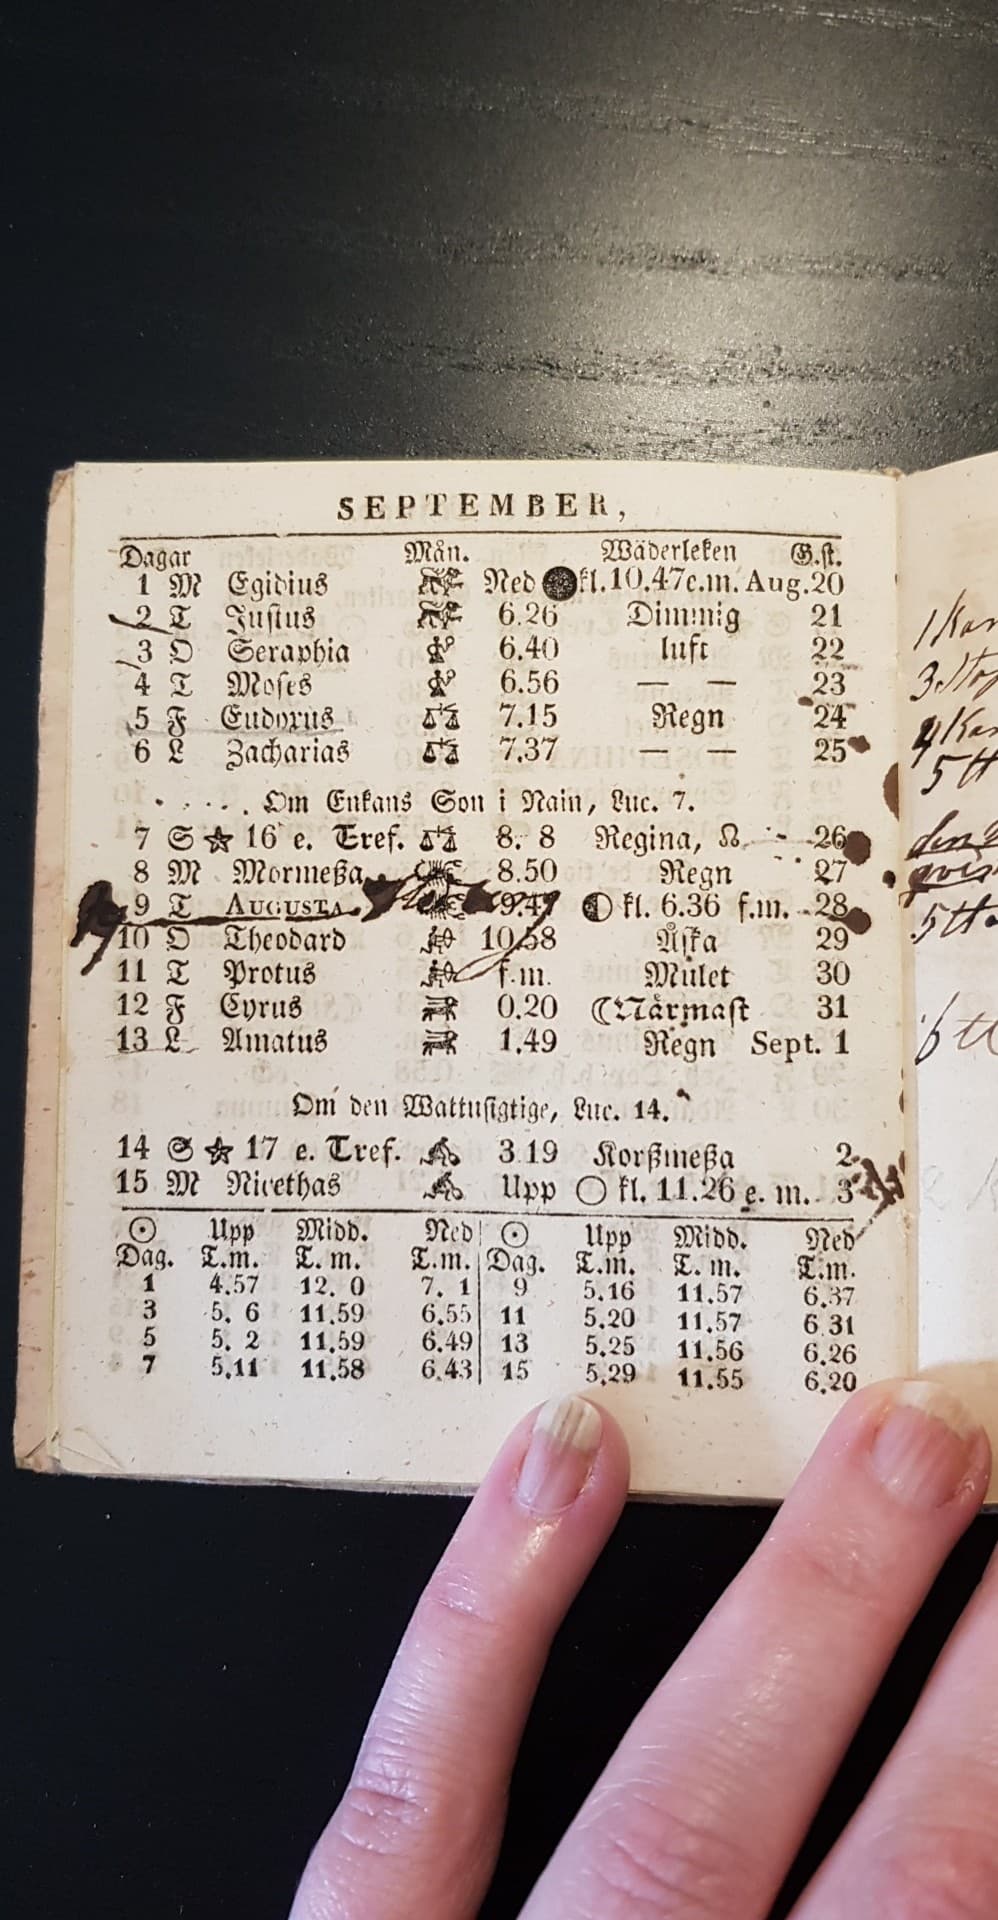 SEPTEMBER,
Dagar Mån. Wäderleken G.st.
1 M Egidius Ned kl. 10.47 e.m. Aug. 20
2 T Justus 6.26 Dimmig 21
3 O Seraphia 6.40 luft 22
4 T Moses 6.56 — — 23
5 F Eudoxus 7.15 Regn 24
6 L Zacharias 7.37 — — 25
Om Enkans Son i Nain, Luc. 7.
7 S ☆ 16 e. Tref. ♎ 8. 8 Regina, ☊ 26
8 M Mormeßa 8.50 Regn 27
9 T AUGUSTA. 9.47 ◐ kl. 6.36 f.m. 28
10 O Theodard 10.58 Åska 29
11 T Protus f.m. Mulet 30
12 F Cyrus 0.20 ☾Närmast 31
13 L Amatus 1.49 Regn Sept. 1
Om den Wattusigtige, Luc. 14.
14 S ☆ 17 e. Tref. 3.19 Korßmeßa 2
15 M Nicethas Upp ○ kl. 11.26 e. m. 3
☉ Upp Midd. Ned ☉ Upp Midd. Ned
Dag. T.m. T. m. T.m. Dag. T.m. T. m. T.m.
1 4.57 12. 0 7. 1 9 5.16 11.57 6.37
3 5. 6 11.59 6.55 11 5.20 11.57 6.31
5 5. 2 11.59 6.49 13 5.25 11.56 6.26
7 5.11 11.58 6.43 15 5.29 11.55 6.20